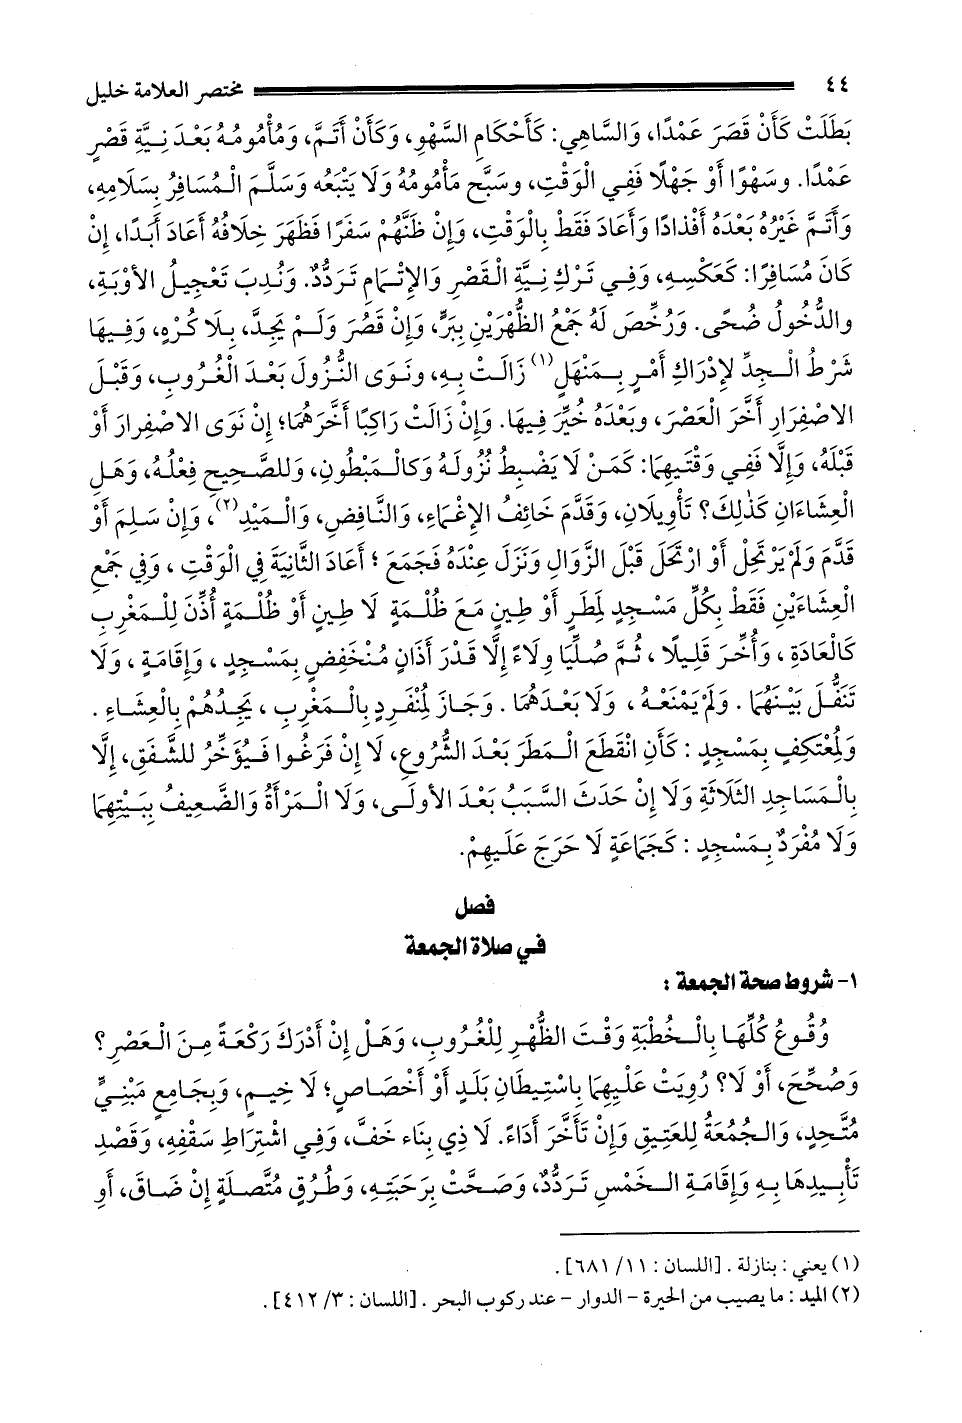 ٤٤ مختصر العلامة خليل
بَطَلَتْ كَأَنْ قَصَرَ عَمْدًا، وَالسَّاهِي: كَأَحْكَامِ السَّهْوِ، وَكَأَنْ أَتَمَّ، وَمَأْمُومُهُ بَعْدَ نِيَّةِ قَصْرٍ
عَمْدًا. وسَهْوًا أَوْ جَهْلًا فَفِي الْوَقْتِ، وسَبَّحَ مَأْمُومُهُ وَلَا يَتْبَعُه وَسَلَّمَ الْمُسَافِرُ بِسَلَامِهِ،
وَأَتَمَّ غَيْرُهُ بَعْدَهُ أَفْذَاذًا وَأَعَادَ فَقَطْ بِالْوَقْتِ، وَإِنْ ظَنَّهُمْ سَفْرًا فَظَهَرَ خِلَافُهُ أَعَادَ أَبَدًا، إِنْ
كَانَ مُسَافِرًا: كَعَكْسِهِ، وَفِي تَرْكِ نِيَّةِ الْقَصْرِ وَالإِتْمَامِ تَرَدُّدٌ. وَنُدِبَ تَعْجِيلُ الأَوْبَةِ،
والدُّخُولُ ضُحًى. وَرُخِّصَ لَهُ جَمْعُ الظُّهْرَيْنِ بِبَرٍّ، وَإِنْ قَصُرَ وَلَمْ يَجِدَّ، بِلَا كُرْهٍ، وَفِيهَا
شَرْطُ الْجِدِّ لِإِدْرَاكِ أَمْرٍ بِمَنْهَلٍ(١) زَالَتْ بِهِ، ونَوَى النُّزُولَ بَعْدَ الْغُرُوبِ، وَقَبْلَ
الاصْفِرَارِ أَخَّرَ الْعَصْرَ، وبَعْدَهُ خُيِّرَ فِيهَا. وَإِنْ زَالَتْ رَاكِبًا أَخَّرَهُمَا؛ إِنْ نَوَى الاصْفِرَارَ أَوْ
قَبْلَهُ، وَإِلَّا فَفِي وَقْتَيْهِمَا: كَمَنْ لَا يَضْبِطُ نُزُولَهُ وَكَالْمَبْطُونِ، وَلِلصَّحِيحِ فِعْلُهُ، وَهَلِ
الْعِشَاءَانِ كَذَلِكَ؟ تَأْوِيلَانِ، وَقَدَّمَ خَائِفُ الإِغْمَاءِ، وَالنَّافِضِ، وَالْمَيْدِ(٢)، وَإِنْ سَلِمَ أَوْ
قَدَّمَ وَلَمْ يَرْتَحِلْ أَوْ ارْتَحَلَ قَبْلَ الزَّوَالِ وَنَزَلَ عِنْدَهُ فَجَمَعَ ؛ أَعَادَ الثَّانِيَةَ فِي الْوَقْتِ ، وَفِي جَمْعِ
الْعِشَاءَيْنِ فَقَطْ بِكُلِّ مَسْجِدٍ لِمَطَرٍ أَوْ طِينٍ مَعَ ظُلْمَةٍ لَا طِينٍ أَوْ ظُلْمَةٍ أُذِّنَ لِلْمَغْرِبِ
كَالْعَادَةِ ، وَأُخِّرَ قَلِيلًا ، ثُمَّ صُلِّيَا وِلَاءً إِلَّا قَدْرَ أَذَانٍ مُنْخَفِضٍ بِمَسْجِدٍ ، وَإِقَامَةٍ ، وَلَا
تَنَفُّلَ بَيْنَهُمَا . وَلَمْ يَمْنَعْهُ ، وَلَا بَعْدَهُمَا . وَجَازَ لِمُنْفَرِدٍ بِالْمَغْرِبِ ، يَجِدُهُمْ بِالْعِشَاءِ .
وَلِمُعْتَكِفٍ بِمَسْجِدٍ : كَأَنِ انْقَطَعَ الْمَطَرَ بَعْدَ الشُّرُوعِ، لَا إِنْ فَرَغُوا فَيُؤَخِّرُ لِلشَّفَقِ، إِلَّا
بِالْمَسَاجِدِ الثَّلَاثَةِ وَلَا إِنْ حَدَثَ السَّبَبُ بَعْدَ الأُولَى، وَلَا الْمَرْأَةُ وَالضَّعِيفُ بِبَيْتِهِمَا
وَلَا مُفْرَدٌ بِمَسْجِدٍ : كَجَمَاعَةٍ لَا حَرَجَ عَلَيهِمْ.
فصل
في صلاة الجمعة
١- شروط صحة الجمعة :
وُقُوعُ كُلِّهَا بِالْخُطْبَةِ وَقْتَ الظُّهْرِ لِلْغُرُوبِ، وَهَلْ إِنْ أَدْرَكَ رَكْعَةً مِنَ الْعَصْرِ؟
وَصُحِّحَ، أَوْ لَا؟ رُوِيَتْ عَلَيْهِمَا بِاسْتِيطَانِ بَلَدٍ أَوْ أَخْصَاصٍ؛ لَا خِيمٍ، وَبِجَامِعٍ مَبْنِيٍّ
مُتَّحِدٍ، وَالْجُمُعَةُ لِلعَتِيقِ وَإِنْ تَأَخَّرَ أَدَاءً. لَا ذِي بِنَاء خَفَّ، وَفِي اشْتِرَاطِ سَقْفِهِ، وَقَصْدِ
تَأْبِيدِهَا بِهِ وَإِقَامَةِ الْخَمْسِ تَرَدُّدٌ، وَصَحَّتْ بِرَحَبَتِهِ، وَطُرُقٍ مُتَّصِلَةٍ إِنْ ضَاقَ، أَوِ
(١) يعني : بنازلة . [اللسان : ١١/ ٦٨١] .
(٢) الميد : ما يصيب من الحيرة – الدوار – عند ركوب البحر . [اللسان : ٣/ ٤١٢] .